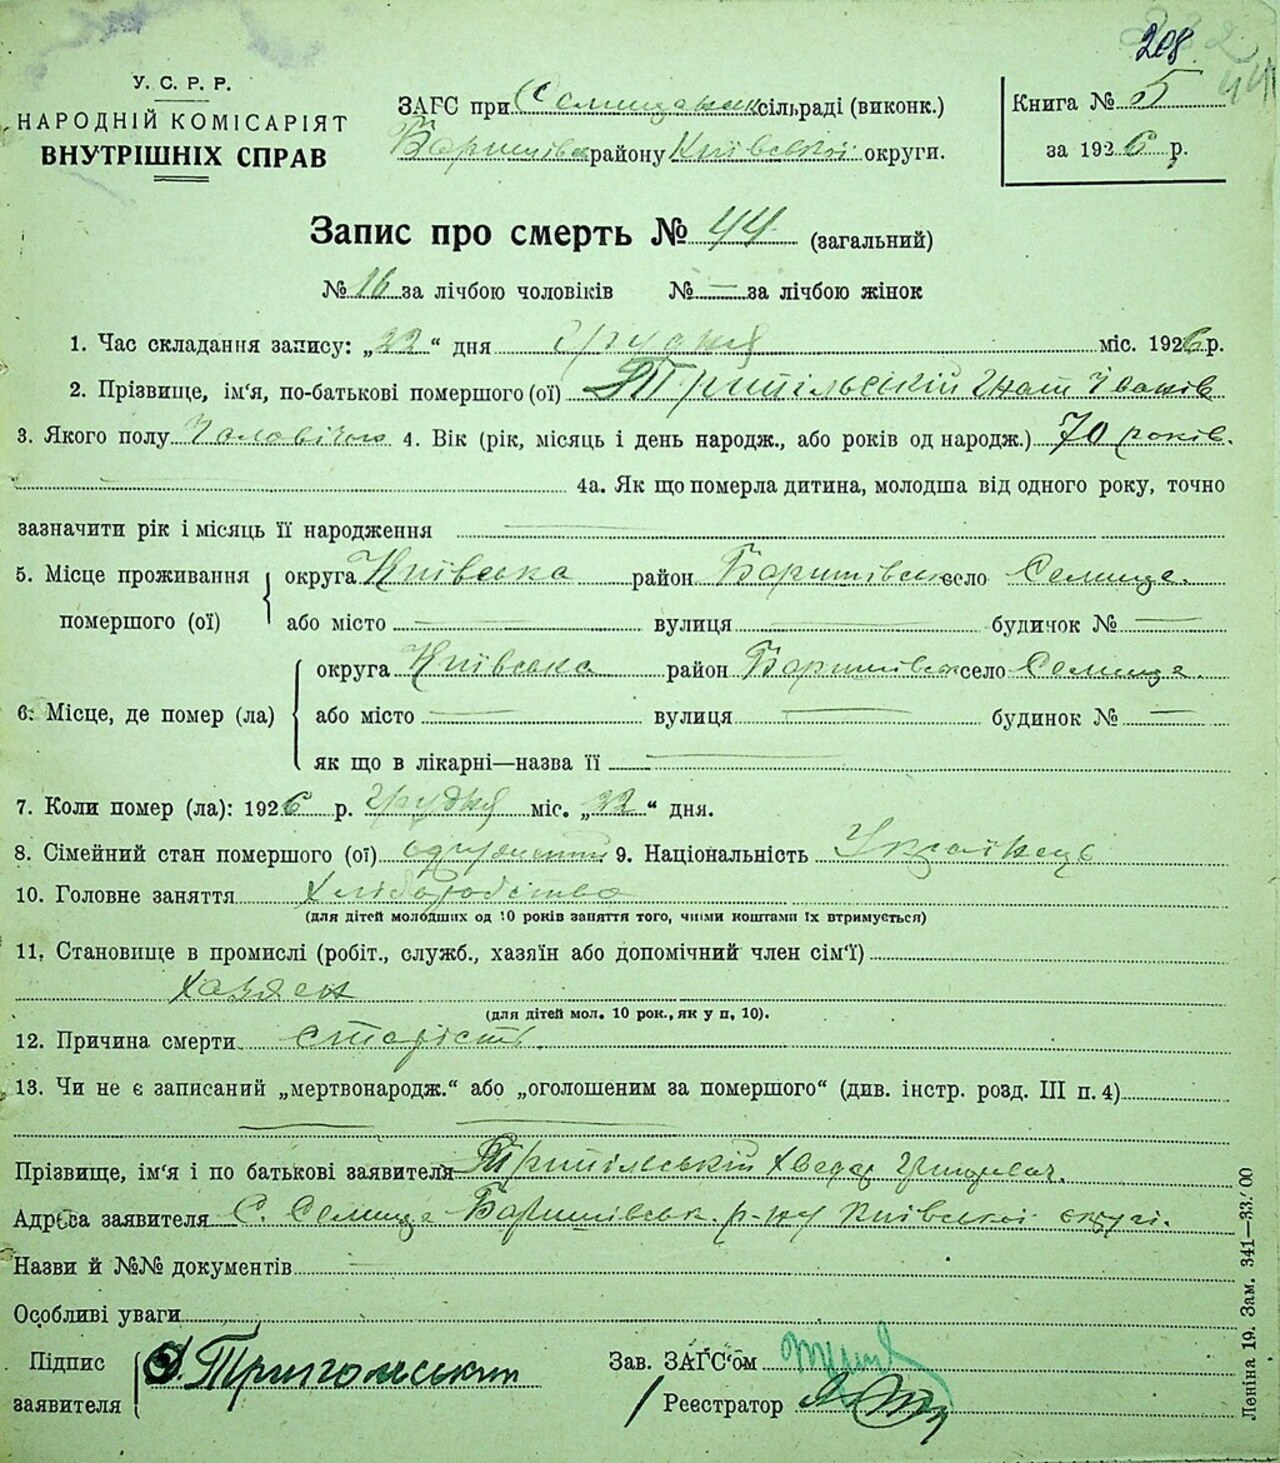 208
44
У. С. Р. Р.
НАРОДНІЙ КОМІСАРІЯТ
ВНУТРІШНІХ СПРАВ
ЗАГС при Селищанськ сільраді (виконк.)
Баришівськ району Київської округи.
Книга № 5
за 1926 р.
Запис про смерть № 44 (загальний)
№ 16 за лічбою чоловіків № — за лічбою жінок
1. Час складання запису: „22“ дня грудня міс. 1926 р.
2. Прізвище, ім'я, по-батькові помершого (ої) Трипільській Гнат Іванів
3. Якого полу Чоловічого 4. Вік (рік, місяць і день народж., або років од народж.) 70 років.
4а. Як що померла дитина, молодша від одного року, точно
зазначити рік і місяць її народження —
5. Місце проживання помершого (ої) округа Київська район Баришівськ село Селище.
або місто — вулиця — будинок № —
6. Місце, де помер (ла) округа Київська район Баришівськ село Селище.
або місто — вулиця — будинок № —
як що в лікарні—назва її —
7. Коли помер (ла): 1926 р. грудня міс. „22“ дня.
8. Сімейний стан помершого (ої) одружений 9. Національність Українець
10. Головне заняття Хліборобство
(для дітей молодших од 10 років заняття того, чиїми коштами їх втримується)
11. Становище в промислі (робіт., служб., хазяїн або допомічний член сім'ї)
Хазяен
(для дітей мол. 10 рок., як у п. 10).
12. Причина смерти старість.
13. Чи не є записаний „мертвонародж.“ або „оголошеним за помершого“ (див. інстр. розд. III п. 4)
— —
Прізвище, ім'я і по батькові заявителя Трипільській Хведар
Адреса заявителя С. Селище Баришівськ. р-ну Київської округі.
Назви й №№ документів —
Особливі уваги
Підпис заявителя
Зав. ЗАГС'ом
Реестратор
Леніна 19. Зам. 341—33.' 00